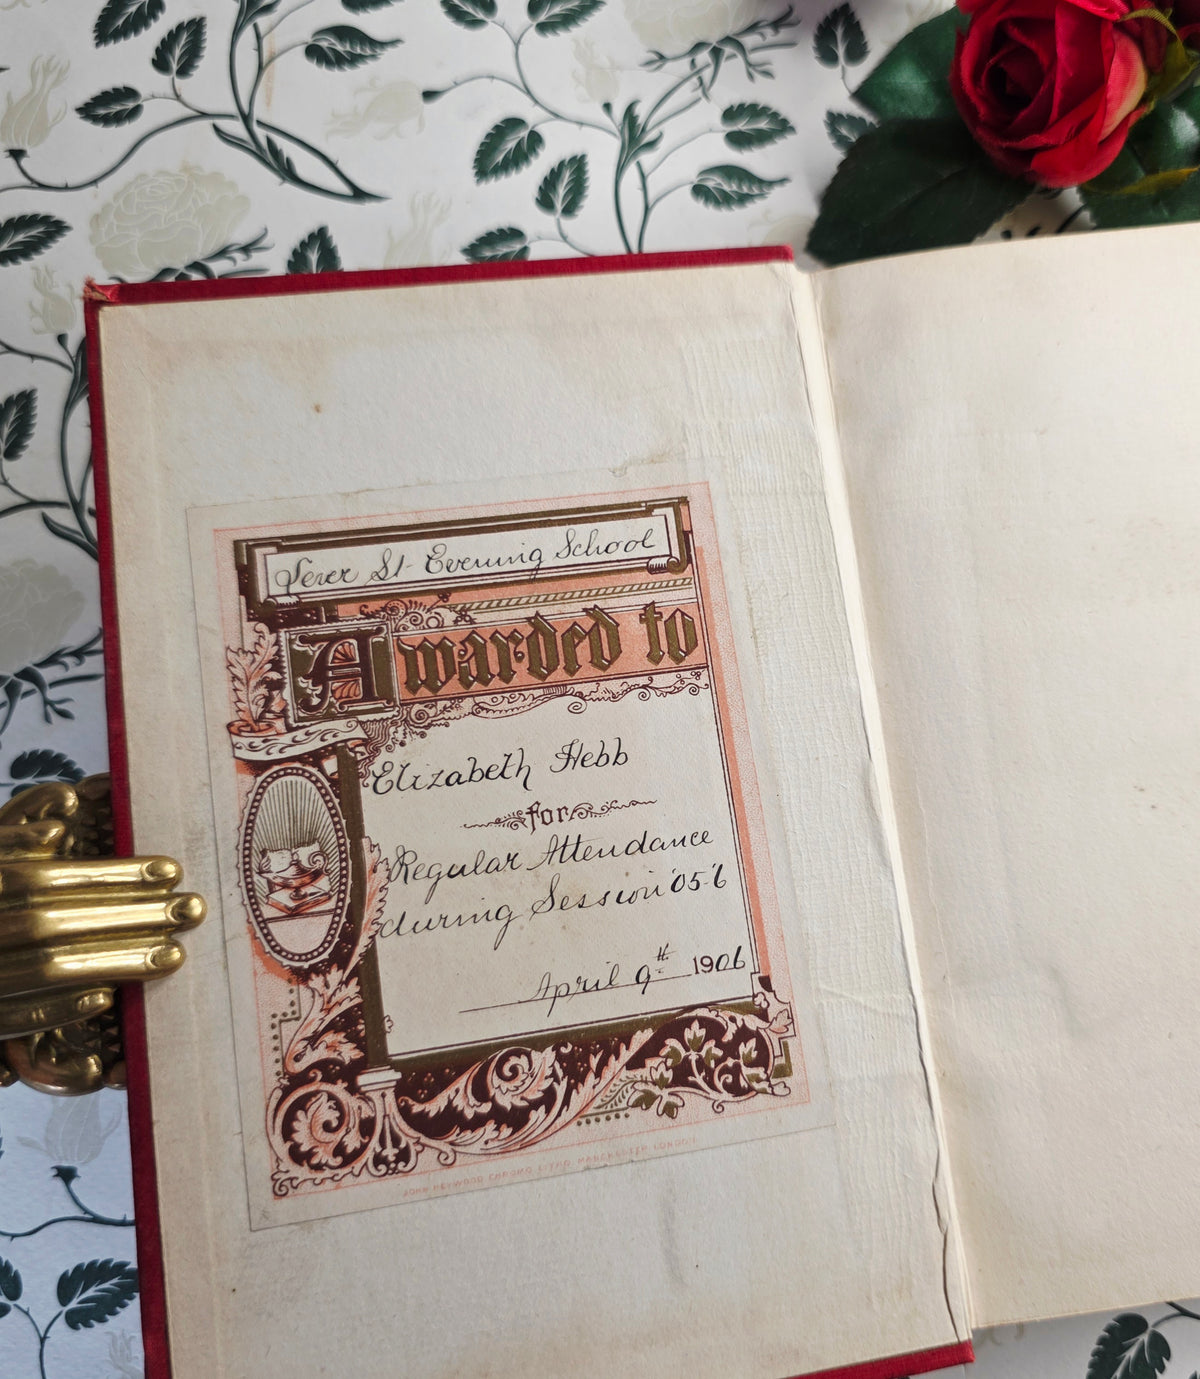 St. Evening School
Awarded to
Elizabeth Hebb
for
Regular Attendance
during Session '05-'6
April 9th 1906
JOHN HEYWOOD CHROMO LITHO MANCHESTER LONDON